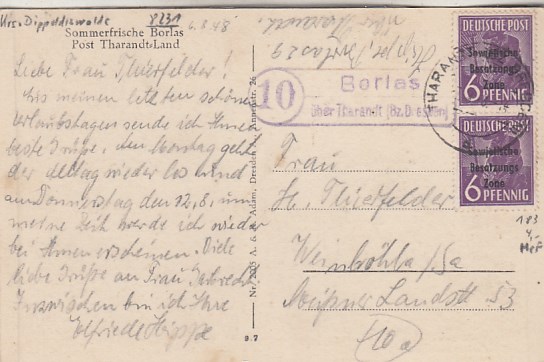 Krs. Dippoldiswalde 8231 6.8.48
Sommerfrische Borlas
Post Tharandt-Land
Liebe Frau Thierfelder!
Aus meinen letzten schönen
Urlaubstagen sende ich Ihnen
beste Grüße. Am Montag geht
der Alltag wieder los und
am Donnerstag den 12.8. um
meine Zeit werde ich wieder
bei Ihnen erscheinen. Viele
liebe Grüße an Frau
Inzwischen bin ich Ihre
Elfriede Hippe
Nr. A. & R. Adam, Dresden Annenstr.
9.7
über Tharandt
10
Borlas
über Tharandt (Bz. Dresden)
THARANDT
DEUTSCHE POST
Sowjetische
Besatzungs
Zone
6 PFENNIG
DEUTSCHE POST
Sowjetische
Besatzungs
Zone
6 PFENNIG
Frau
H. Thierfelder
Weinböhla /Sa
Meißner Landstr. 53
(10a)
183
4,-